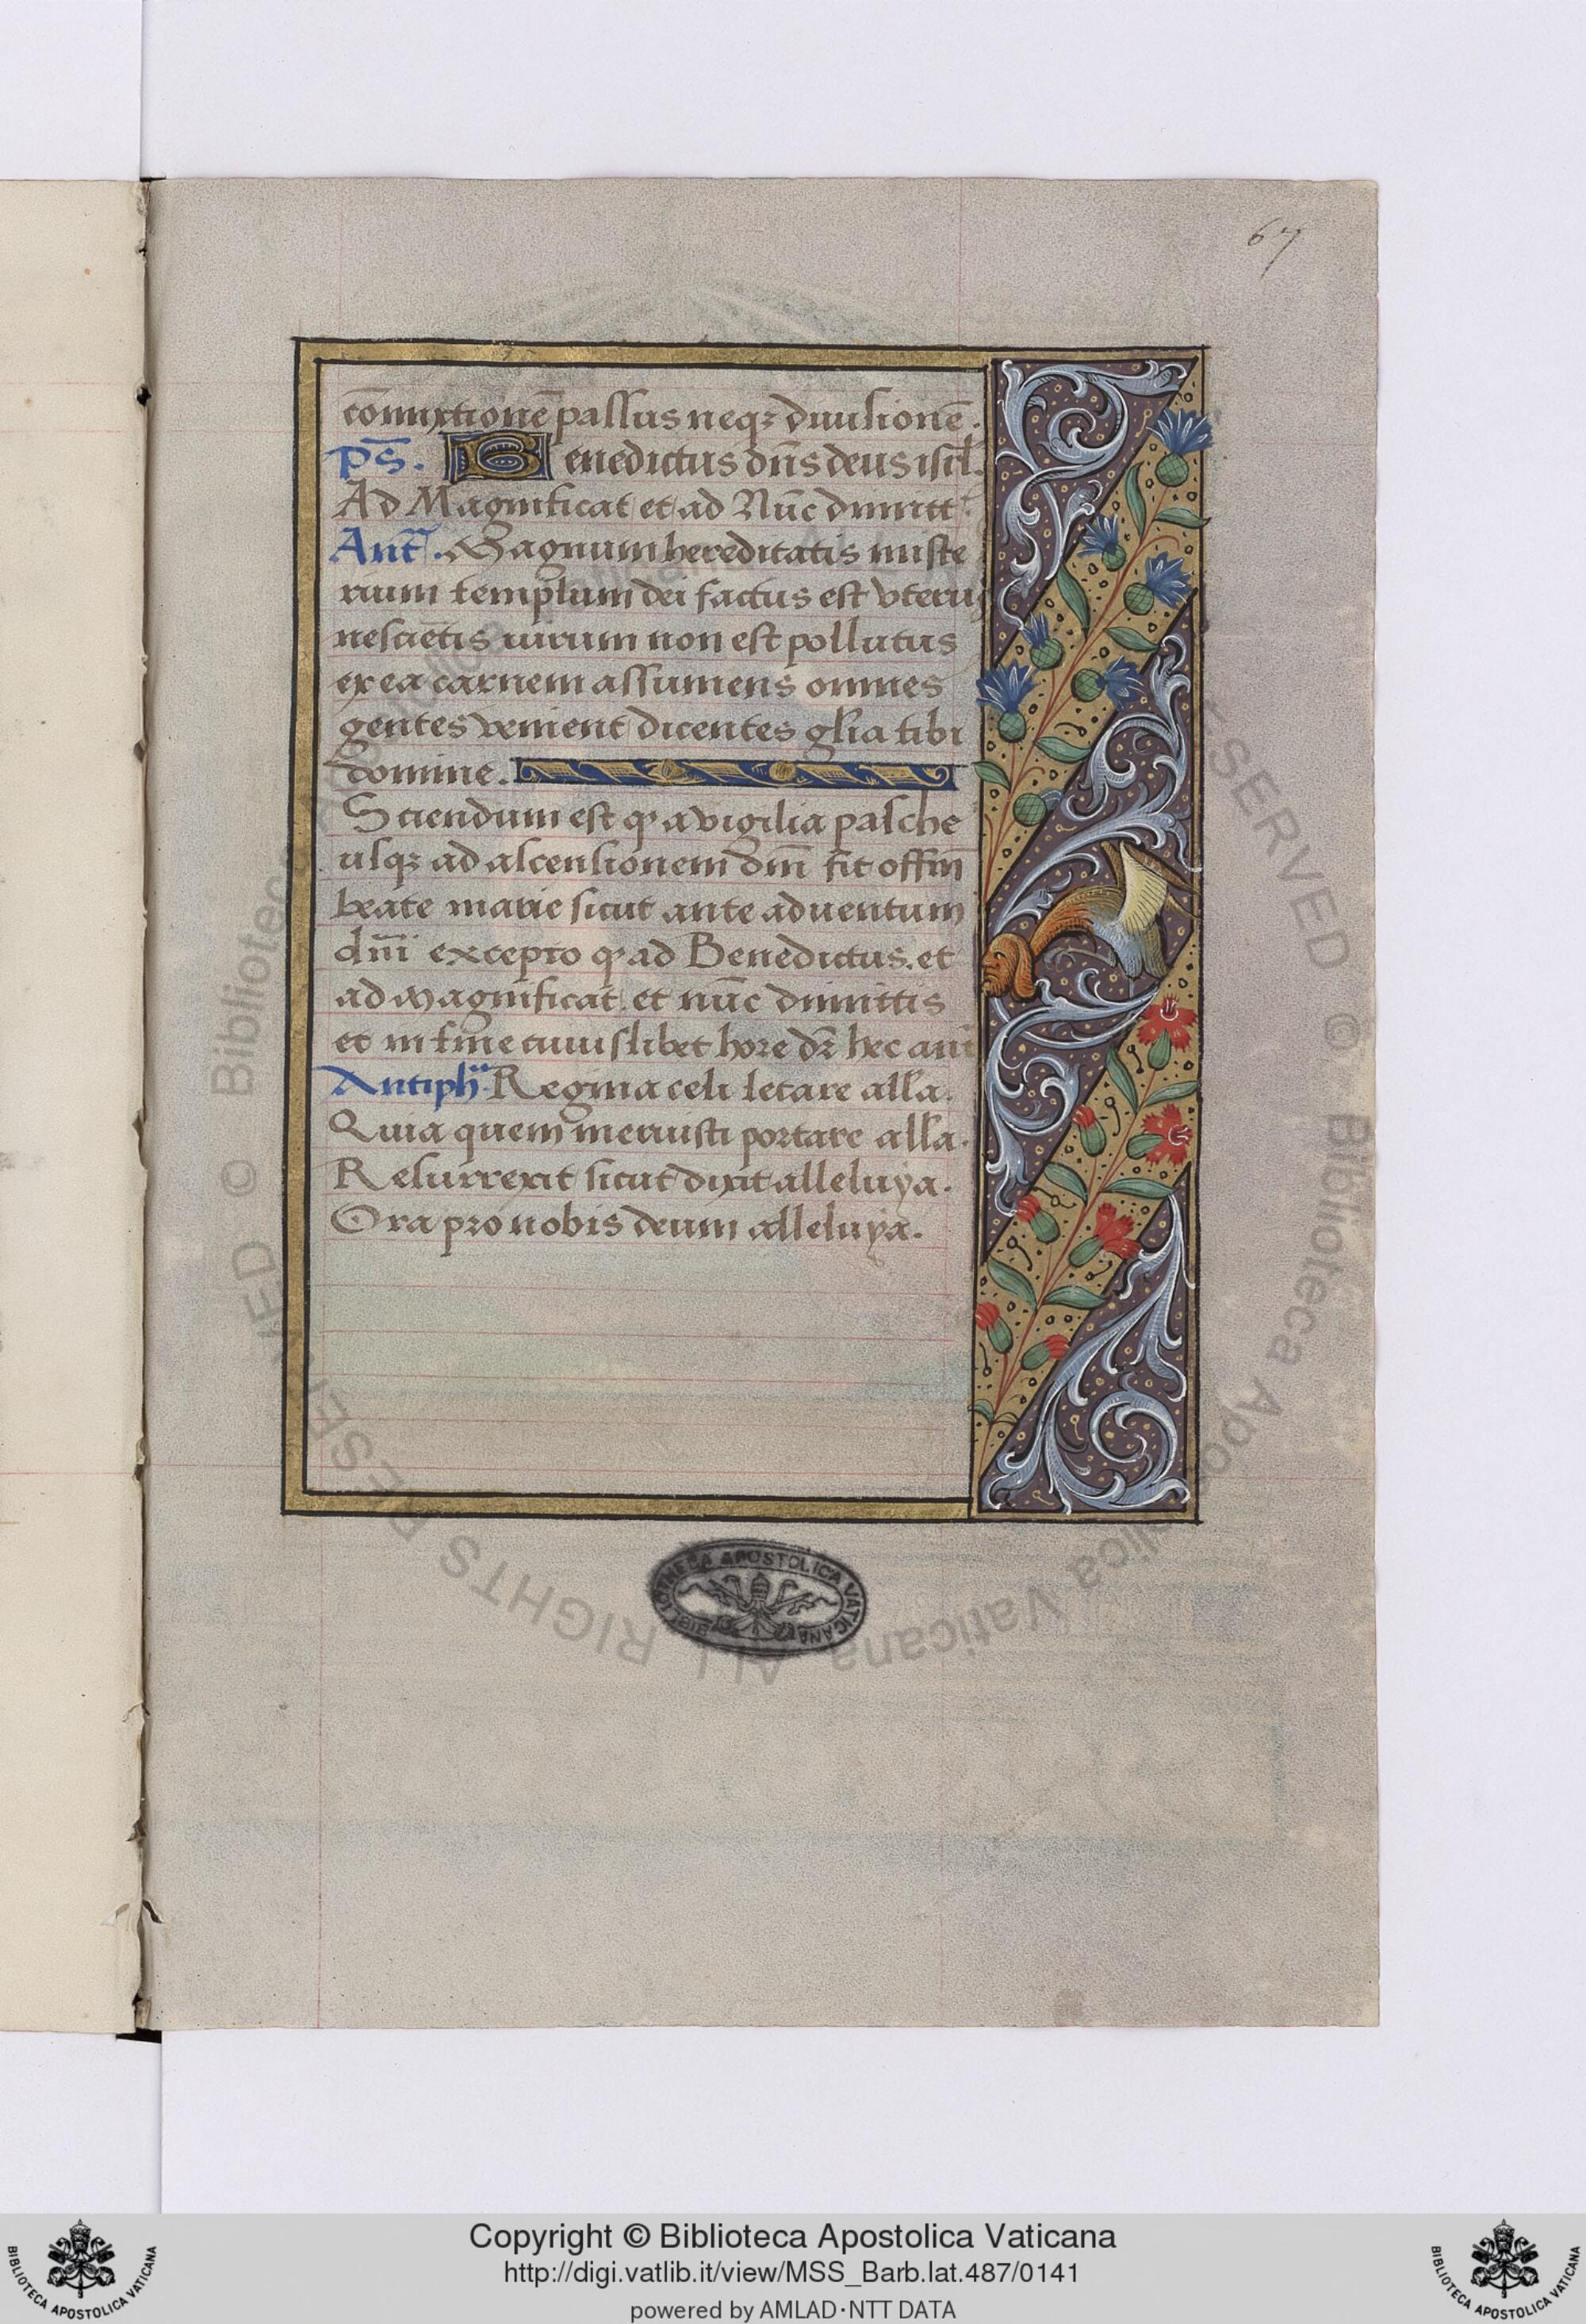 67
cōmixtionē passus neqꝫ diuisionē.
p̄s. Benedictus dn̄s deus isrl̄.
Ad Magnificat et ad Nūc dimitt̄.
Ant̄. Magnum hereditatis miste
rium templum dei factus est vterus
nesciētis uirum non est pollutus
ex ea carnem assumens omnes
gentes venient dicentes gl̄ia tibi
domine.
Sciendum est ꝙ a vigilia pasche
usqꝫ ad ascensionem dn̄i fit offm̄
beate marie sicut ante aduentum
dn̄i excepto ꝙ ad Benedictus. et
ad Magnificat. et nūc dimittis
et in fine cuiuslibet hore dr̄ hec ant̄
Antiphᵃ. Regina celi letare all̄a.
Quia quem meruisti portare all̄a.
Resurrexit sicut dixit alleluya.
Ora pro nobis deum alleluya.
BIBLIOTHECA APOSTOLICA VATICANA
© Biblioteca Apostolica Vaticana ALL RIGHTS RESERVED
Copyright © Biblioteca Apostolica Vaticana
http://digi.vatlib.it/view/MSS_Barb.lat.487/0141
powered by AMLAD·NTT DATA
BIBLIOTECA APOSTOLICA VATICANA
BIBLIOTECA APOSTOLICA VATICANA